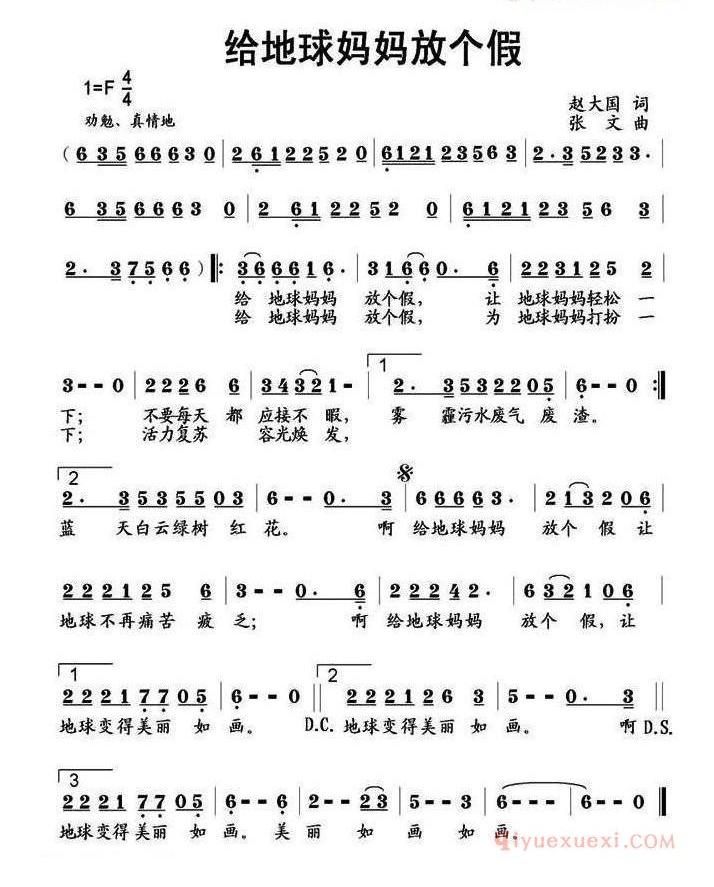 给地球妈妈放个假
1=F 4/4
劝勉、真情地
赵大国 词
张 文 曲
( 6 3 5 6 6 6 3 0 | 2 6 1 2 2 5 2 0 | 6 1 2 1 2 3 5 6 3 | 2 · 3 5 2 3 3 · |
6 3 5 6 6 6 3 0 | 2 6 1 2 2 5 2 0 | 6 1 2 1 2 3 5 6 3 |
2 · 3 7 5 6 6 ) ‖: 3 6 6 6 1 6 · | 3 1 6 6 0 · 6 | 2 2 3 1 2 5 2 |
给 地球妈妈 放个假， 让 地球妈妈轻松一
给 地球妈妈 放个假， 为 地球妈妈打扮一
3 - - 0 | 2 2 2 6 6 | 3 4 3 2 1 - | 1 2 · 3 5 3 2 2 0 5 | 6 - - 0 :‖
下； 不要每天 都 应接不 暇， 雾 霾污水废气 废 渣。
下； 活力复苏 容光焕 发，
2
2 · 3 5 3 5 5 0 3 | 6 - - 0 · 3 | 6 6 6 6 3 · | 2 1 3 2 0 6 |
蓝 天白云绿树 红 花。 啊 给地球妈妈 放个 假 让
2 2 2 1 2 5 6 | 3 - - 0 · 6 | 2 2 2 4 2 · | 6 3 2 1 0 6 |
地球不再痛苦 疲 乏； 啊 给地球妈妈 放个 假，让
1 2
2 2 2 1 7 7 0 5 | 6 - - 0 ‖ 2 2 2 1 2 6 3 | 5 - - 0 · 3 ‖
地球变得美丽 如 画。 D.C. 地球变得美丽 如 画。 啊 D.S.
3
2 2 2 1 7 7 0 5 | 6 - - 6 | 2 - - 2 3 | 5 - - 3 | 6 - - - | 6 - - 0 ‖
地球变得美丽 如 画。美 丽 如 画 如 画。
qiyuexuexi.COM